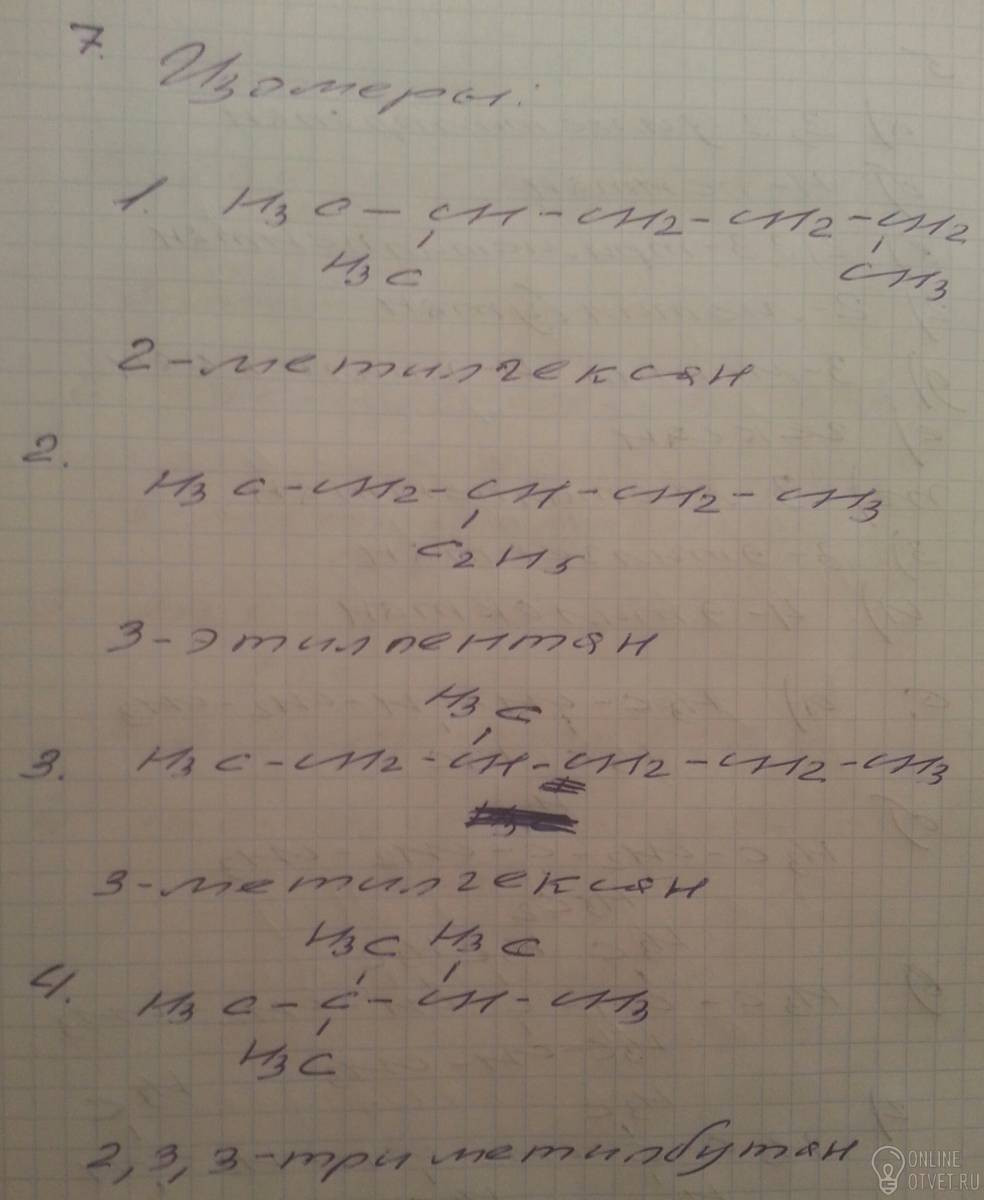 7.
Изомеры:
1. H3C – CH – CH2 – CH2 – CH2
H3C CH3
2-метилгексан
2.
H3C – CH2 – CH – CH2 – CH3
C2H5
3-этилпентан
H3C
3. H3C – CH2 – CH – CH2 – CH2 – CH3
3-метилгексан
H3C H3C
4. H3C – C – CH – CH3
H3C
2,3,3-триметилбутан
ONLINE
OTVET.RU